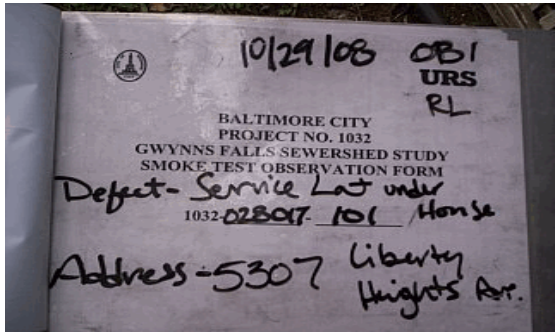 10/29/08 OB1
URS
RL
BALTIMORE CITY
PROJECT NO. 1032
GWYNNS FALLS SEWERSHED STUDY
SMOKE TEST OBSERVATION FORM
Defect - Service Lat under
1032-028017-101 House
Address - 5307 Liberty
Heights Ave.